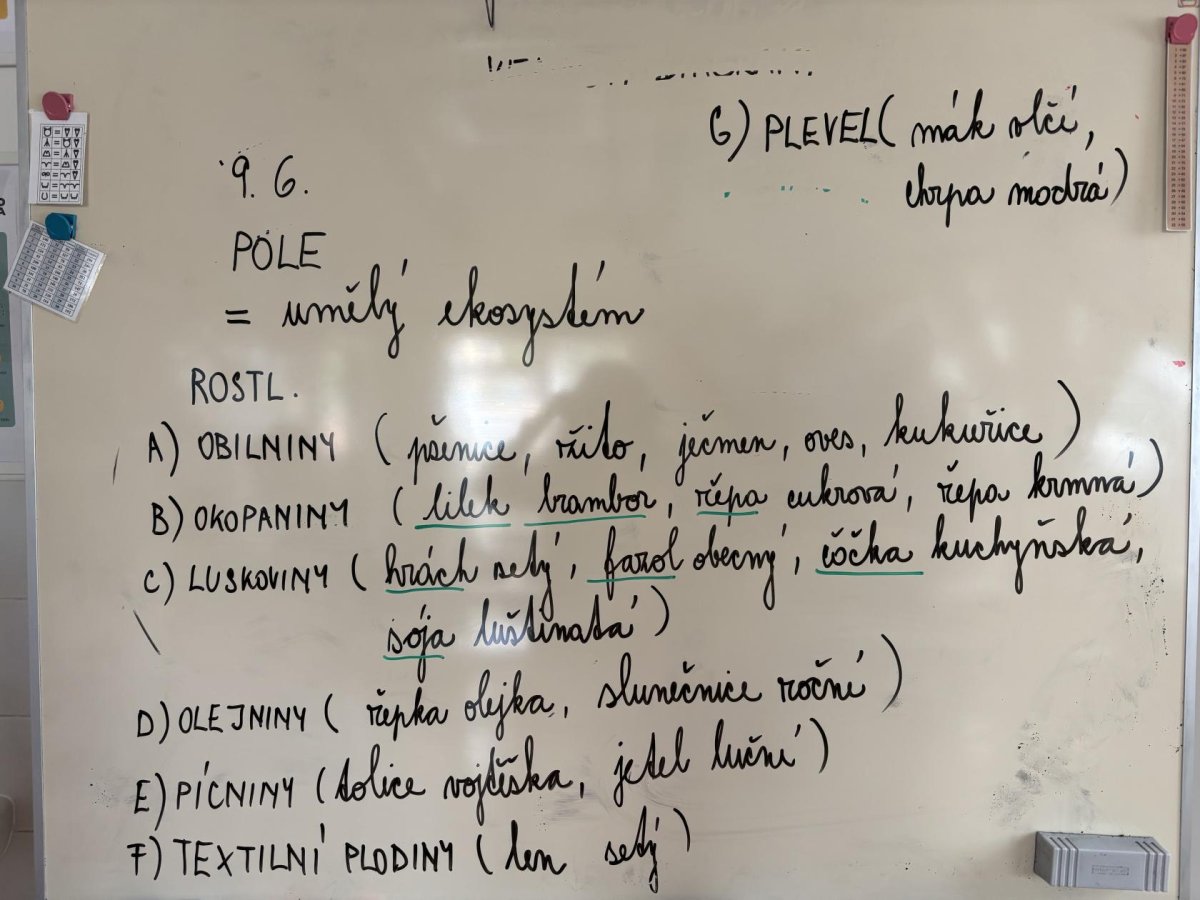 9. 6.
POLE
= umělý ekosystém
ROSTL.
A) OBILNINY (pšenice, řžito, ječmen, oves, kukuřice)
B) OKOPANINY (lilek brambor, řepa cukrová, řepa krmná)
C) LUSKOVINY (hrách setý, fazol obecný, čočka kuchyňská,
sója luštinatá)
D) OLEJNINY (řepka olejka, slunečnice roční)
E) PÍCNINY (tolice vojtěška, jetel luční)
F) TEXTILNÍ PLODINY (len setý)
G) PLEVEL (mák vlčí,
chrpa modrá)